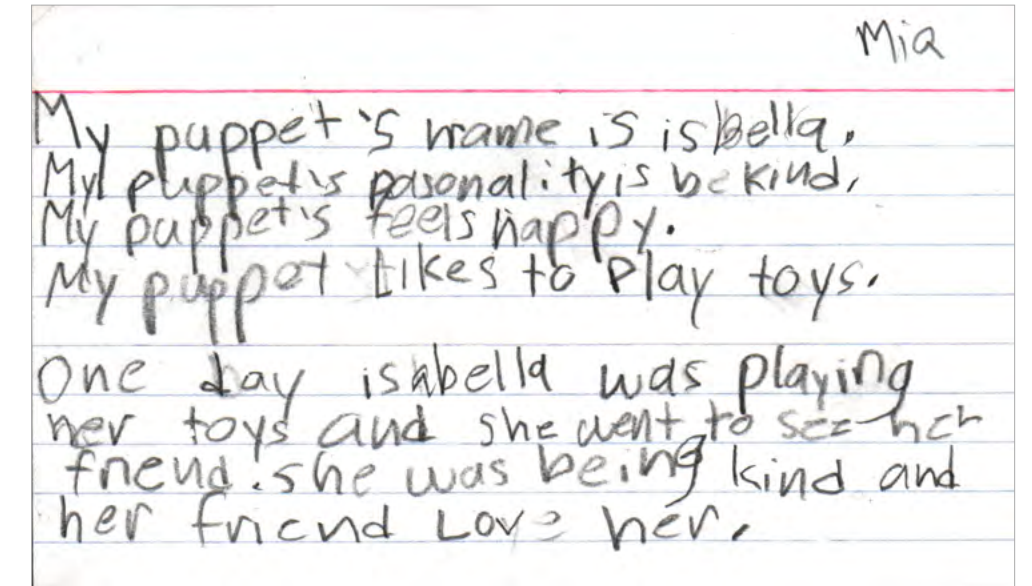 Mia
My puppet's name is isbella.
My puppet's pasonality is be kind,
My puppet's feels happy.
My puppet Likes to Play toys.
One day isabella was playing
her toys and she went to see her
friend. she was being kind and
her friend Love her.